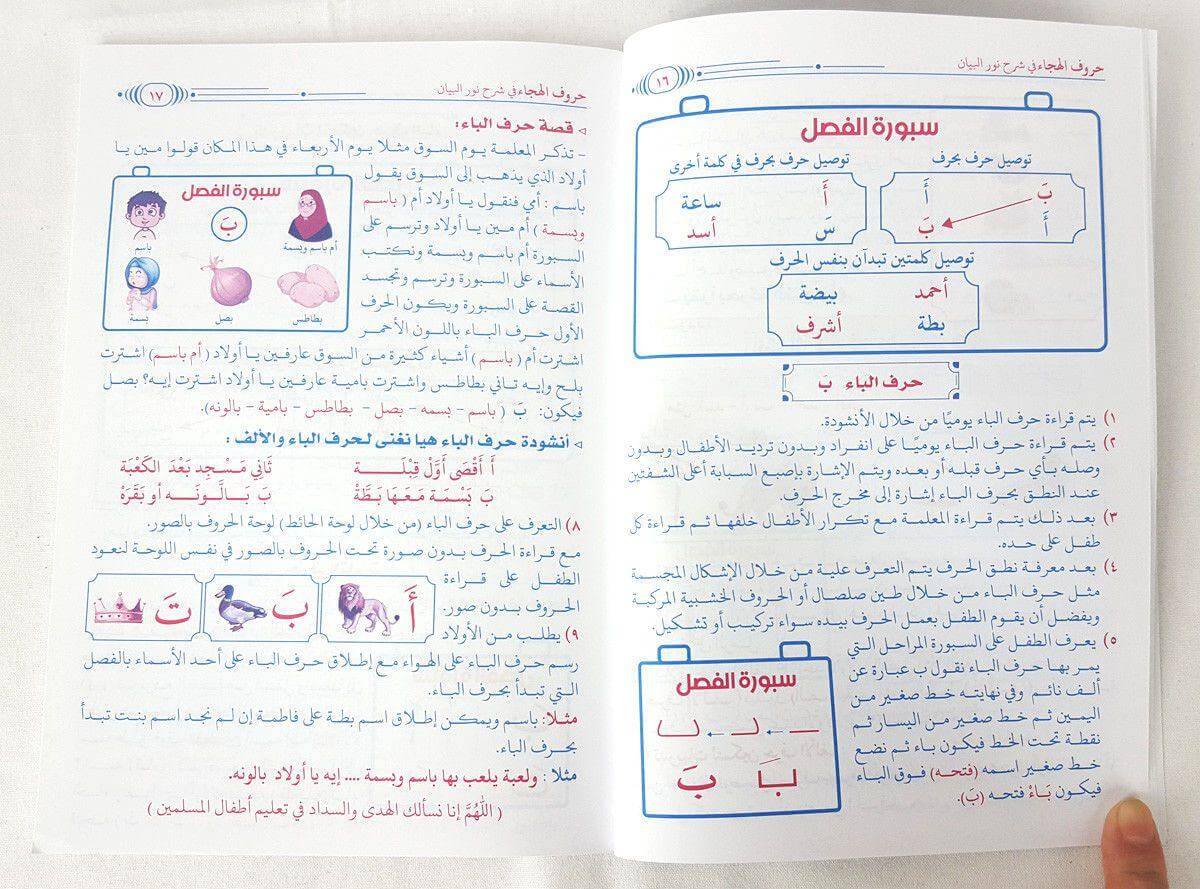 حروف الهجاء في شرح نور البيان
١٦
سبورة الفصل
توصيل حرف بحرف
بَ أَ
أَ بَ
توصيل حرف بحرف في كلمة أخرى
أَ ساعة
سَ أسد
توصيل كلمتين تبدآن بنفس الحرف
أحمد بيضة
بطة أشرف
حرف الباء بَ
١) يتم قراءة حرف الباء يوميًا من خلال الأنشودة.
٢) يتم قراءة حرف الباء يوميًا على انفراد وبدون ترديد الأطفال وبدون
وصله بأي حرف قبله أو بعده ويتم الإشارة بإصبع السبابة أعلى الشفتين
عند النطق بحرف الباء إشارة إلى مخرج الحرف.
٣) بعد ذلك يتم قراءة المعلمة مع تكرار الأطفال خلفها ثم قراءة كل
طفل على حده.
٤) بعد معرفة نطق الحرف يتم التعرف علية من خلال الإشكال المجسمة
مثل حرف الباء من خلال طين صلصال أو الحروف الخشبية المركبة
ويفضل أن يقوم الطفل بعمل الحرف بيده سواء تركيب أو تشكيل.
٥) يعرف الطفل على السبورة المراحل التي
يمر بها حرف الباء نقول ب عبارة عن
ألف نائم وفي نهايته خط صغير من
اليمين ثم خط صغير من اليسار ثم
نقطة تحت الخط فيكون باء ثم نضع
خط صغير اسمه (فتحه) فوق الباء
فيكون بَاءْ فتحه (بَ).
سبورة الفصل
بَ
حروف الهجاء في شرح نور البيان
١٧
قصة حرف الباء:
- تذكر المعلمة يوم السوق مثلا يوم الأربعاء في هذا المكان قولوا مين يا
أولاد الذي يذهب إلى السوق يقول
باسم : أمي فنقول يا أولاد أم ( باسم
وبسمة ) أم مين يا أولاد وترسم على
السبورة أم باسم وبسمة ونكتب
الأسماء على السبورة وترسم وتجسد
القصة على السبورة ويكون الحرف
الأول حرف الباء باللون الأحمر
سبورة الفصل
بَ
باسم
أم باسم وبسمة
بسمة
بصل
بطاطس
اشترت أم ( باسم) أشياء كثيرة من السوق عارفين يا أولاد ( أم باسم) اشترت
بلح وإيه تاني بطاطس واشترت بامية عارفين يا أولاد اشترت إيه؟ بصل
فيكون: بَ ( باسم – بسمه – بصل – بطاطس – بامية – بالونه).
أنشودة حرف الباء هيا نغنى لحرف الباء والألف :
أَ أَقْصَى أَوَّلْ قِبْلَـــــة ثَانِي مَسْجِد بَعْدَ الكَعْبَة
بَ بَسْمَة مَعَـهَا بَطَّةْ بَ بَـالُّونَـــه أو بَقَرَهْ
٨) التعرف على حرف الباء (من خلال لوحة الحائط) لوحة الحروف بالصور.
مع قراءة الحرف بدون صورة تحت الحروف بالصور في نفس اللوحة لنعود
الطفل على قراءة
الحروف بدون صور.
أَ
بَ
تَ
٩) يطلب من الأولاد
رسم حرف الباء على الهواء مع إطلاق حرف الباء على أحد الأسماء بالفصل
التي تبدأ بحرف الباء.
مثلا: باسم ويمكن إطلاق اسم بطة على فاطمة إن لم نجد اسم بنت تبدأ
بحرف الباء.
مثلا : ولعبة يلعب بها باسم وبسمة .... إيه يا أولاد بالونه.
( اللهُمَّ إنا نسألك الهدى والسداد في تعليم أطفال المسلمين )